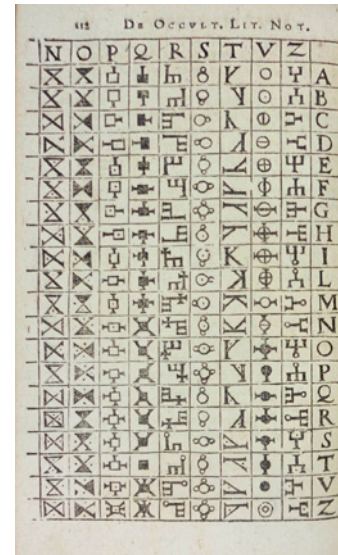 112 DE OCCVLT. LIT. NOT.
N O P Q R S T V Z
A
B
C
D
E
F
G
H
I
L
M
N
O
P
Q
R
S
T
V
Z